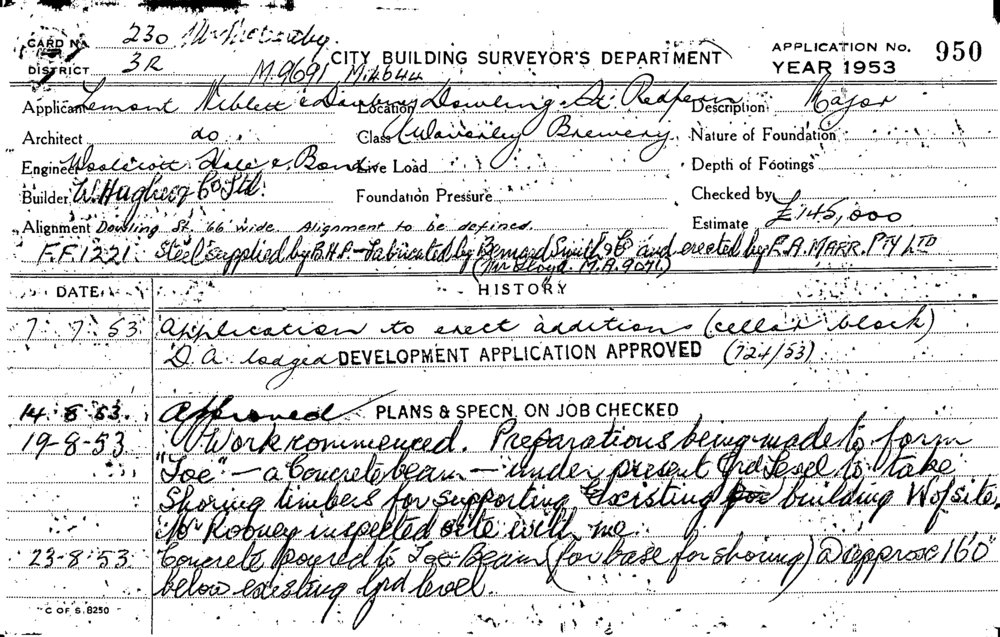 CARD No. 230 Mr McCarthy
DISTRICT 3R M.9691 M.4644 CITY BUILDING SURVEYOR'S DEPARTMENT APPLICATION No. 950
YEAR 1953
Applicant Lemont Niblett & Location Dowling St Redfern Description Major
Architect do Class (Waverley Brewery) Nature of Foundation
Engineer Woolcott Hale & Bond Live Load Depth of Footings
Builder W. Hughes & Co Ltd. Foundation Pressure Checked by
Alignment Dowling St. 66' wide. Alignment to be defined. Estimate £145,000
FF1221. Steel supplied by B.H.P. - fabricated by Bernard Smith & Co and erected by E.A. MARR. PTY LTD
(Mr Lloyd M.A.9071)
DATE HISTORY
7 7 53 Application to erect additions (cellar block)
D A lodged DEVELOPMENT APPLICATION APPROVED (724/53)
14 8 53 Approved PLANS & SPECN. ON JOB CHECKED
19-8-53 Work commenced. Preparations being made to form
"Toe" - a Concrete beam - under present Grd Level to take
Shoring timbers for supporting Existing for building W of site.
Mr Rooney inspected site with me
23-8-53 Concrete poured to Toe Beam (for base for shoring) @ approx 16'0"
below existing grd level.
C OF S. 8250